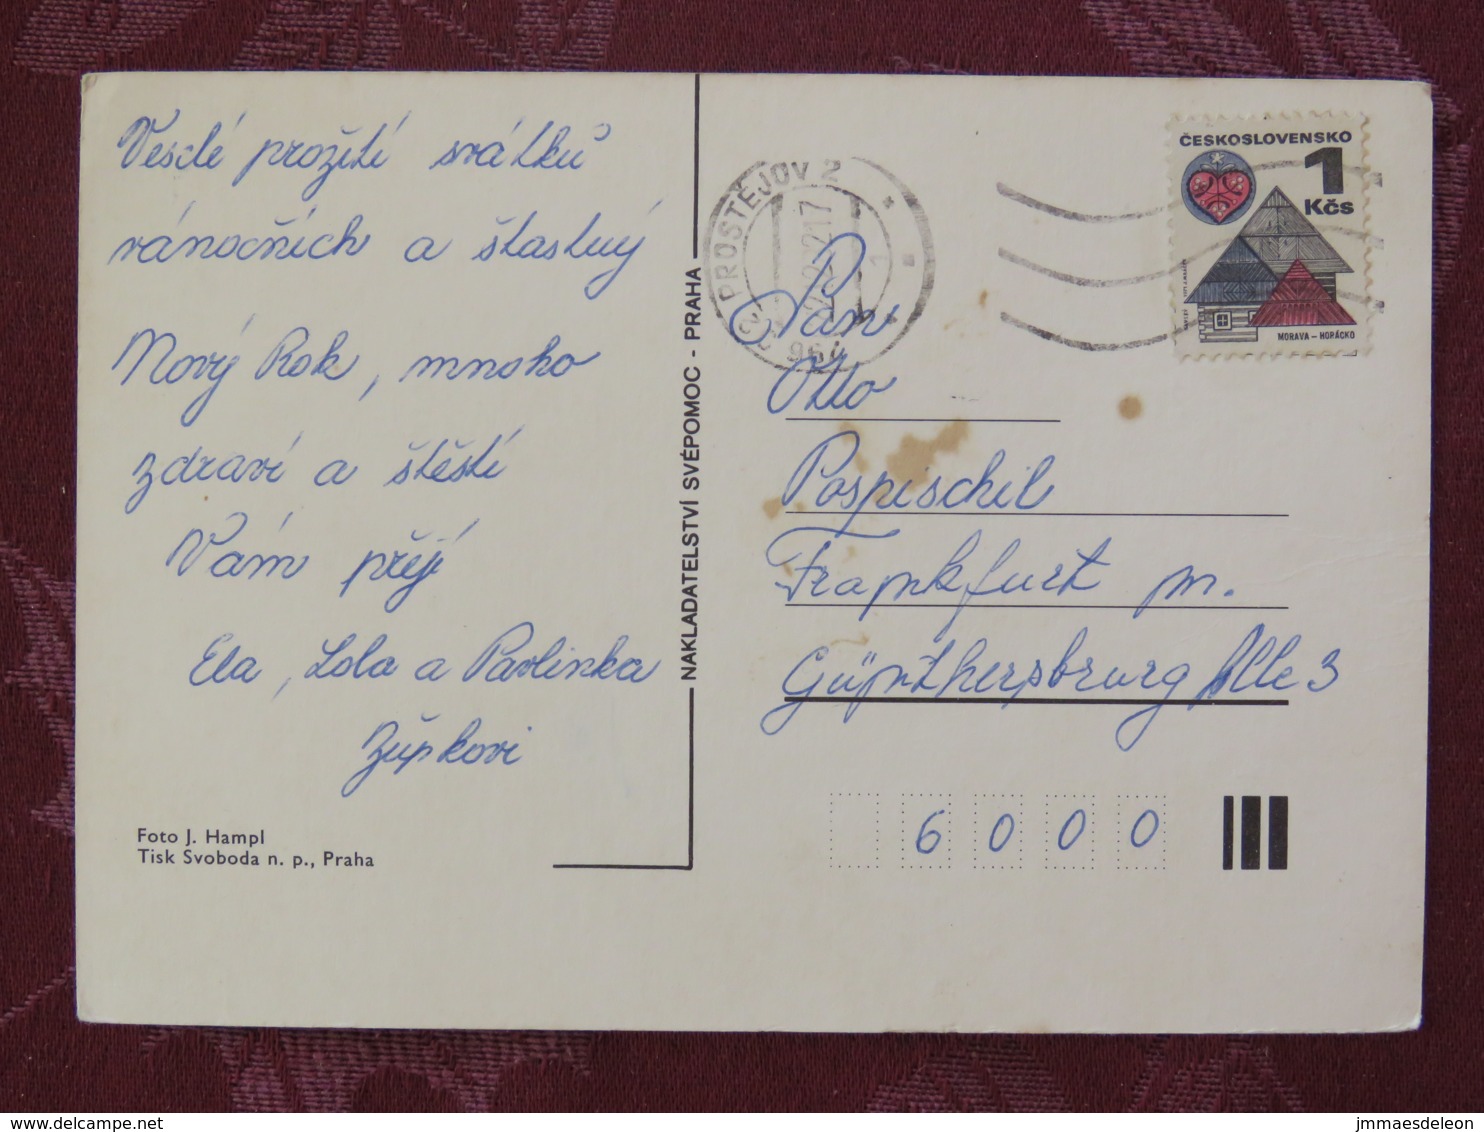 Veselé prožití svátků
vánočních a šťastný
Nový Rok, mnoho
zdraví a štěstí
Vám přejí
Ela, Lola a Pavlinka
Župkovi
Foto J. Hampl
Tisk Svoboda n. p., Praha
NAKLADATELSTVÍ SVÉPOMOC - PRAHA
PROSTĚJOV 2
ČESKOSLOVENSKO
1
Kčs
MORAVA – HORÁCKO
Pan
Otto
Pospischil
Frankfurt m.
Günthersbrurg Alle 3
6 0 0 0
www.delcampe.net
jmmaesdeleon